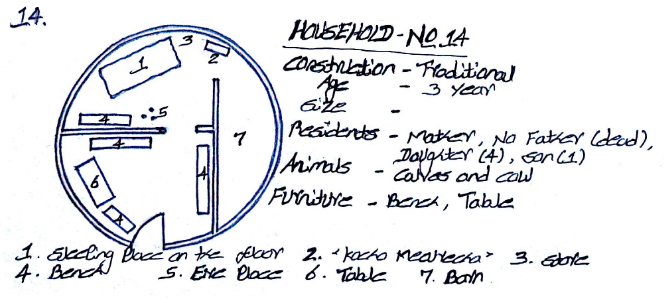 14.
HOUSEHOLD - NO 14
Construction - Traditional
Age - 3 year
Size -
Residents - Mother, No Father (dead),
Daughter (4), son (1)
Animals - Calves and cow
Furniture - Bench, Table
1
3
2
4
5
4
7
6
4
4
1. Sleeping Place on the floor 2. "Kocho 3. Store
4. Bench 5. Fire Place 6. Table 7. Barn